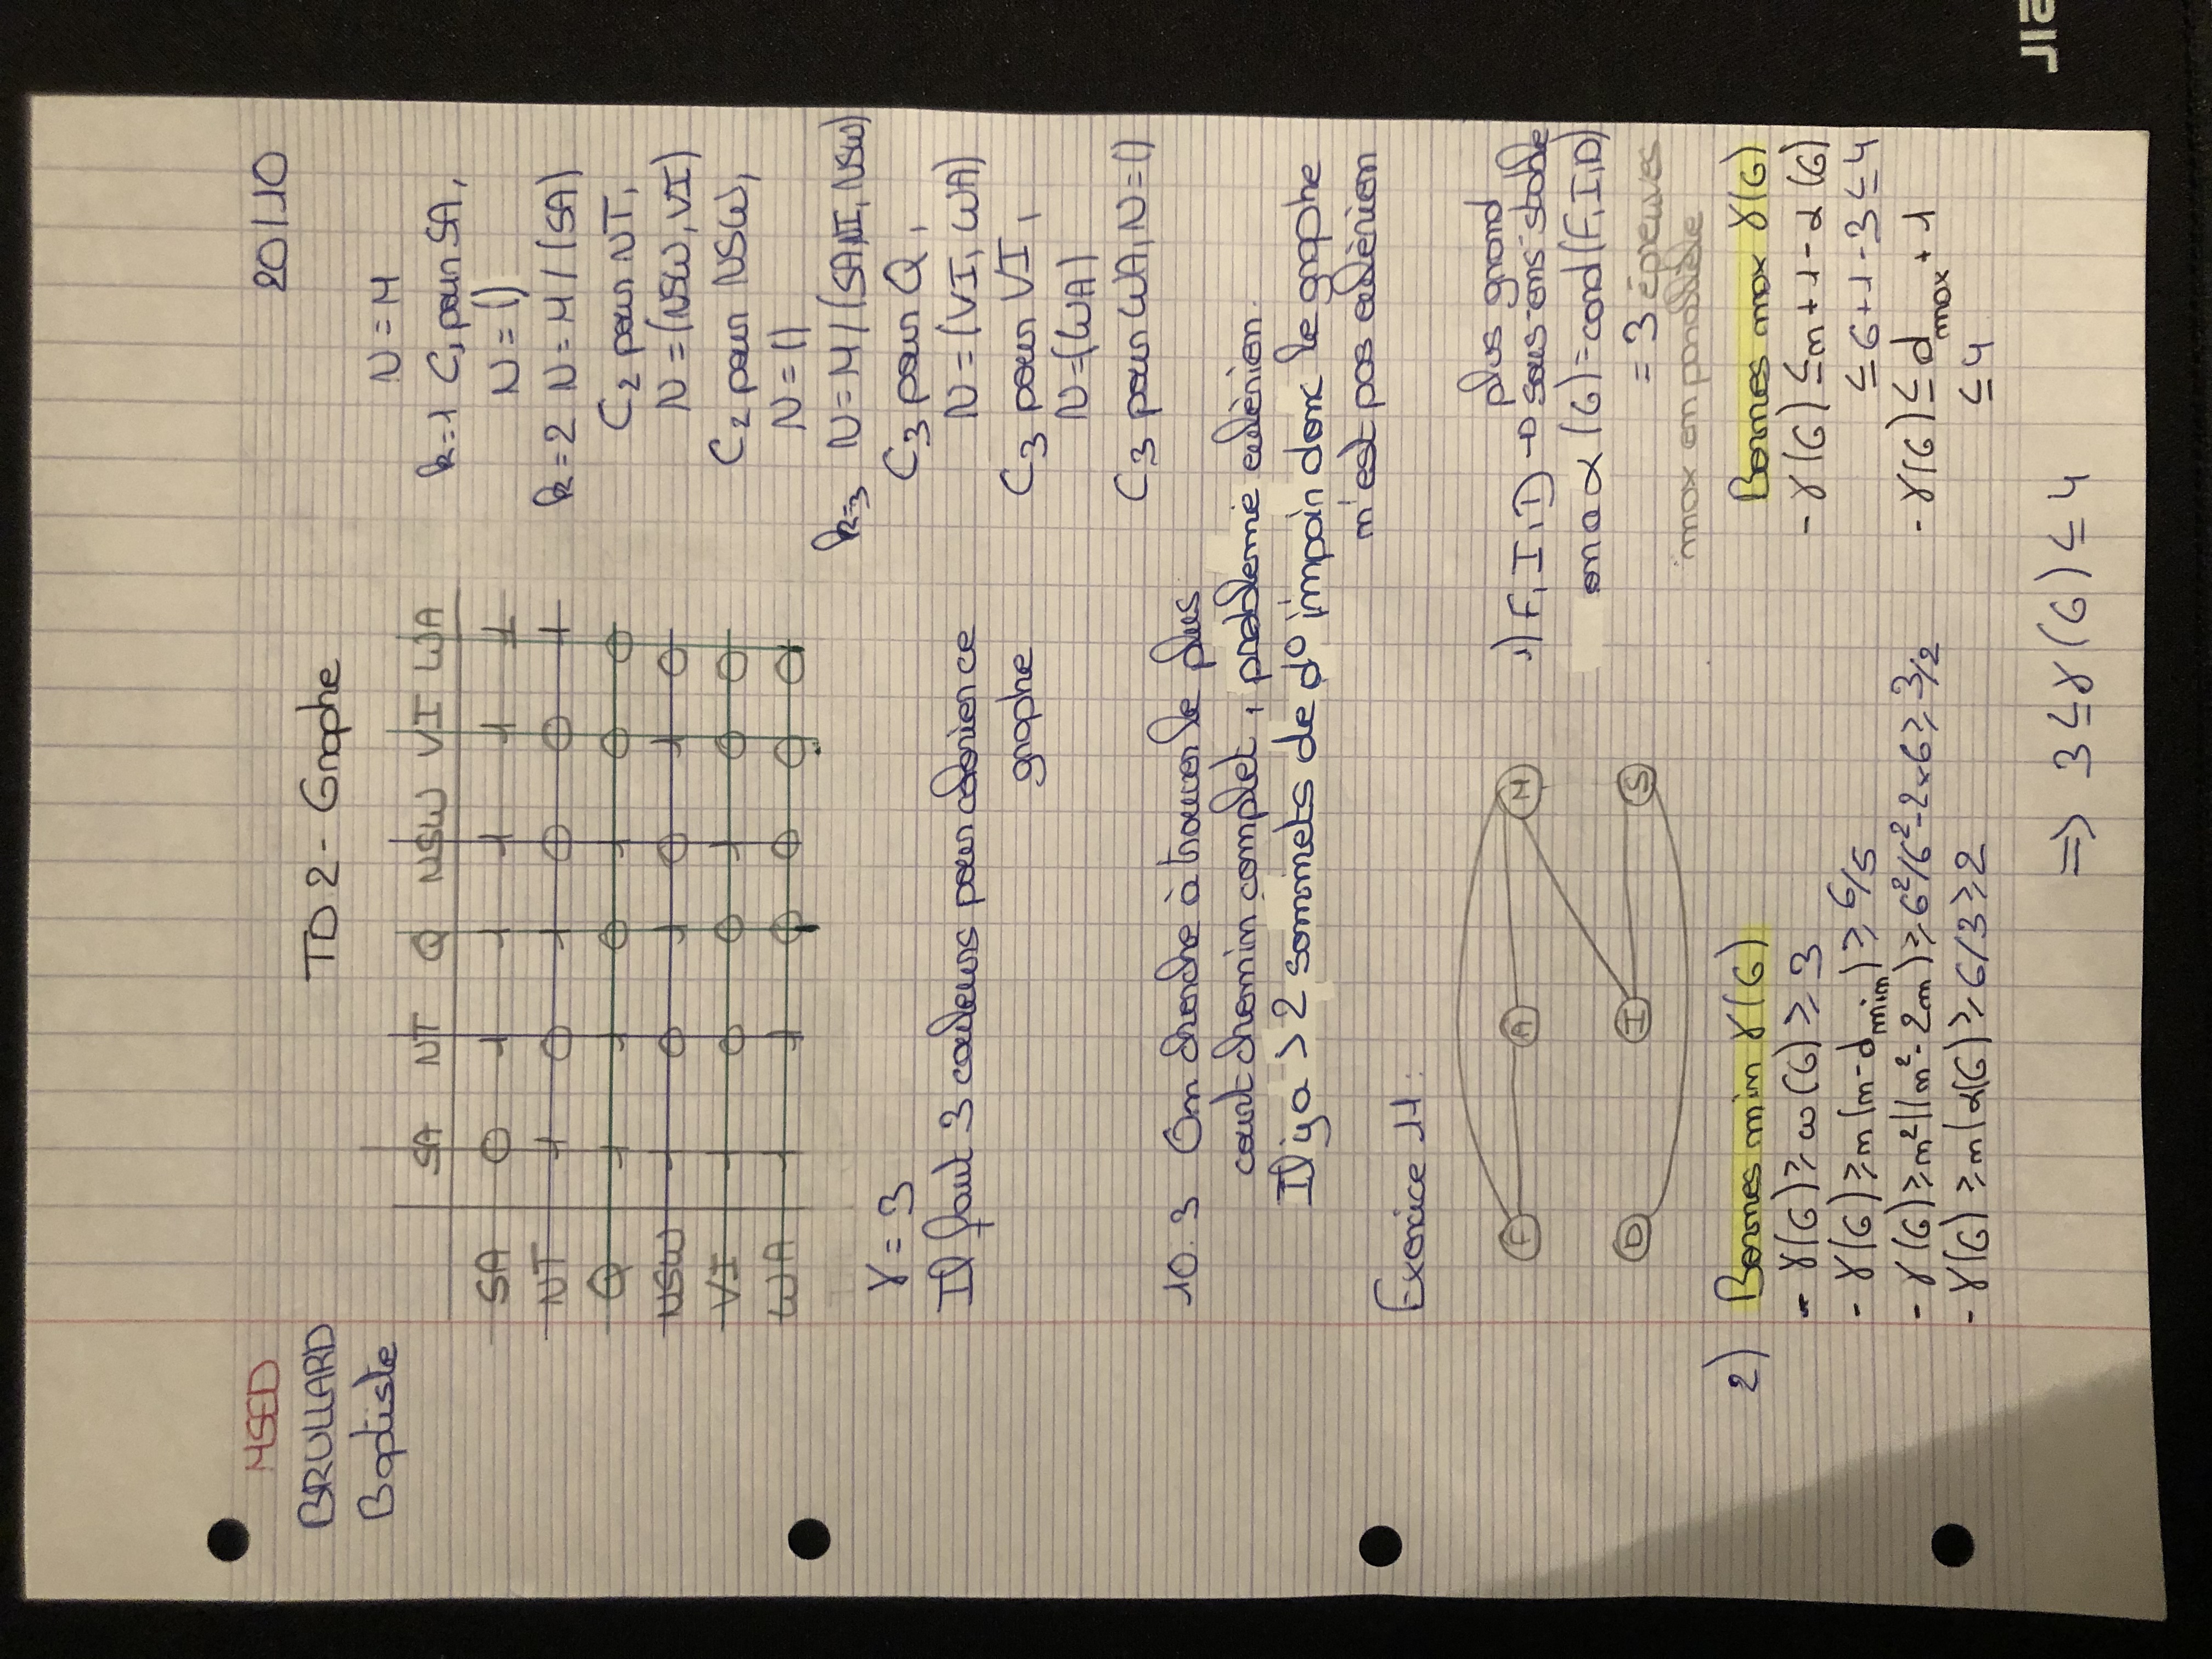 MSED
20/10
BRULLARD
Baptiste
TD 2 - Graphe
SA NT Q NSW VI WA
SA 0 1 1 1 1 1
NT 1 0 1 0 0 1
Q 1 1 0 1 0 0
NSW 1 0 1 0 1 0
VI 1 0 0 1 0 0
WA 1 1 0 0 0 0
γ = 3
Il faut 3 couleurs pour colorier ce
graphe
N = M
k=1 C1 pour SA,
N = ()
k=2 N = M / (SA)
C2 pour NT,
N = (NSW, VI)
C2 pour NSW,
N = ()
k=3 N = M / (SA, NT, NSW)
C3 pour Q,
N = (VI, WA)
C3 pour VI,
N = (WA)
C3 pour WA, N = ()
10.3 On cherche à trouver le plus
court chemin complet, problème eulérien.
Il y a > 2 sommets de d° impair donc le graphe
n'est pas eulérien
Exercice 11 :
F A N
D I S
1) F, I, D → plus grand
sous-ens stable
on a α(G) = card(F, I, D)
= 3 épreuves
max en parallèle
2) Bornes min γ(G)
- γ(G) ≥ ω(G) ≥ 3
- γ(G) ≥ n/(n-dmin) ≥ 6/5
- γ(G) ≥ n²/(n²-2m) ≥ 6²/6²-2×6 ≥ 3/2
- γ(G) ≥ n/α(G) ≥ 6/3 ≥ 2
Bornes max γ(G)
- γ(G) ≤ n+1-α(G)
≤ 6+1-3 ≤ 4
- γ(G) ≤ dmax + 1
≤ 4
⇒ 3 ≤ γ(G) ≤ 4